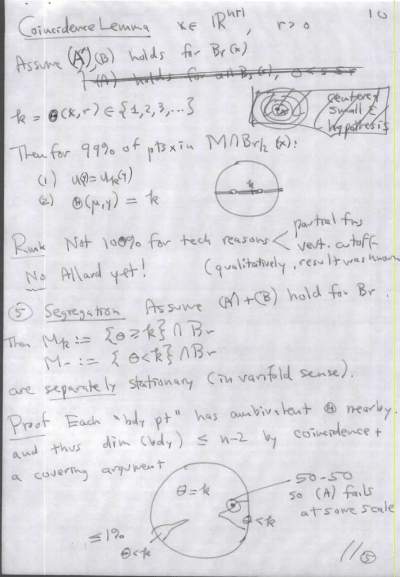 10
Coincidence Lemma x∈ ℝⁿ⁺¹, r > 0
Assume (A'), (B) holds for Br(x)
k = Θ(x,r) ∈ {1,2,3,...}
centered
small ε
hypothesis
Then for 99% of pts x in M∩Br/2(x):
(1)
(2) Θ(μ,y) = k
Rmk Not 100% for tech reasons < partial fns
vert. cutoff
No Allard yet! (qualitatively, result was known
⑤ Segregation Assume (A')+(B) hold for Br.
Then Mk := {Θ≥k} ∩ Br
M- := {Θ<k} ∩ Br
are separately stationary (in varifold sense).
Proof Each "bdy pt" has ambivalent Θ nearby.
and thus dim(bdy) ≤ n-2 by coincidence +
a covering argument
Θ=k
50-50
so (A) fails
at some scale
Θ<k
≤1%
Θ<k
//⑤